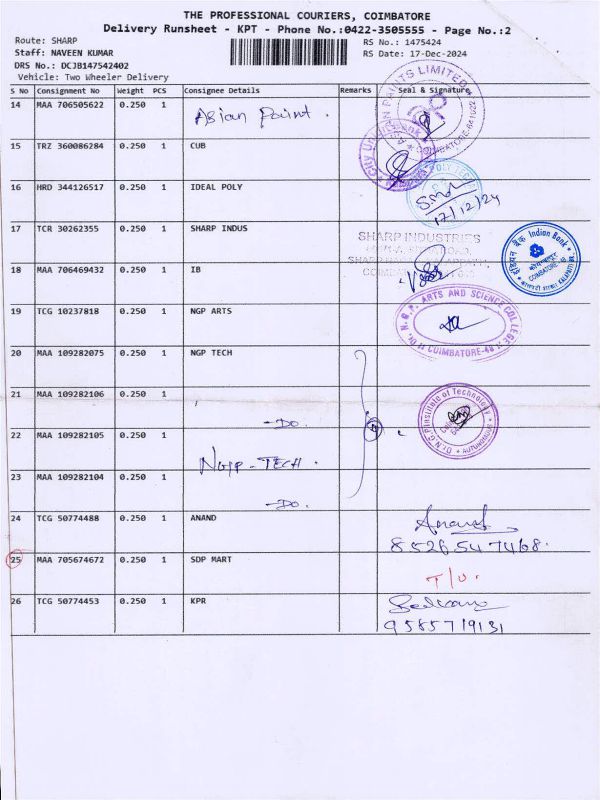 THE PROFESSIONAL COURIERS, COIMBATORE
Delivery Runsheet - KPT - Phone No.:0422-3505555 - Page No.:2
Route: SHARP
RS No.: 1475424
Staff: NAVEEN KUMAR
RS Date: 17-Dec-2024
DRS No.: DCJB147542402
Vehicle: Two Wheeler Delivery
S No Consignment No Weight PCS Consignee Details Remarks Seal & Signature
14 MAA 706505622 0.250 1 Asian Paint.
PAINTS LIMITED
COIMBATORE-641022
15 TRZ 360086284 0.250 1 CUB
City Union Bank
16 HRD 344126517 0.250 1 IDEAL POLY
17/12/24
17 TCR 30262355 0.250 1 SHARP INDUS
SHARP INDUSTRIES
18 MAA 706469432 0.250 1 IB
इंडियन बैंक Indian Bank
COIMBATORE
19 TCG 10237818 0.250 1 NGP ARTS
Dr. N.G.P. ARTS AND SCIENCE COLLEGE
COIMBATORE-48
20 MAA 109282075 0.250 1 NGP TECH
21 MAA 109282106 0.250 1 -Do.
Dr. N.G.P Institute of Technology
22 MAA 109282105 0.250 1 NGP-TECH.
23 MAA 109282104 0.250 1 -Do.
24 TCG 50774488 0.250 1 ANAND Anand
8526547468.
25 MAA 705674672 0.250 1 SDP MART
T/O.
26 TCG 50774453 0.250 1 KPR
9585719131